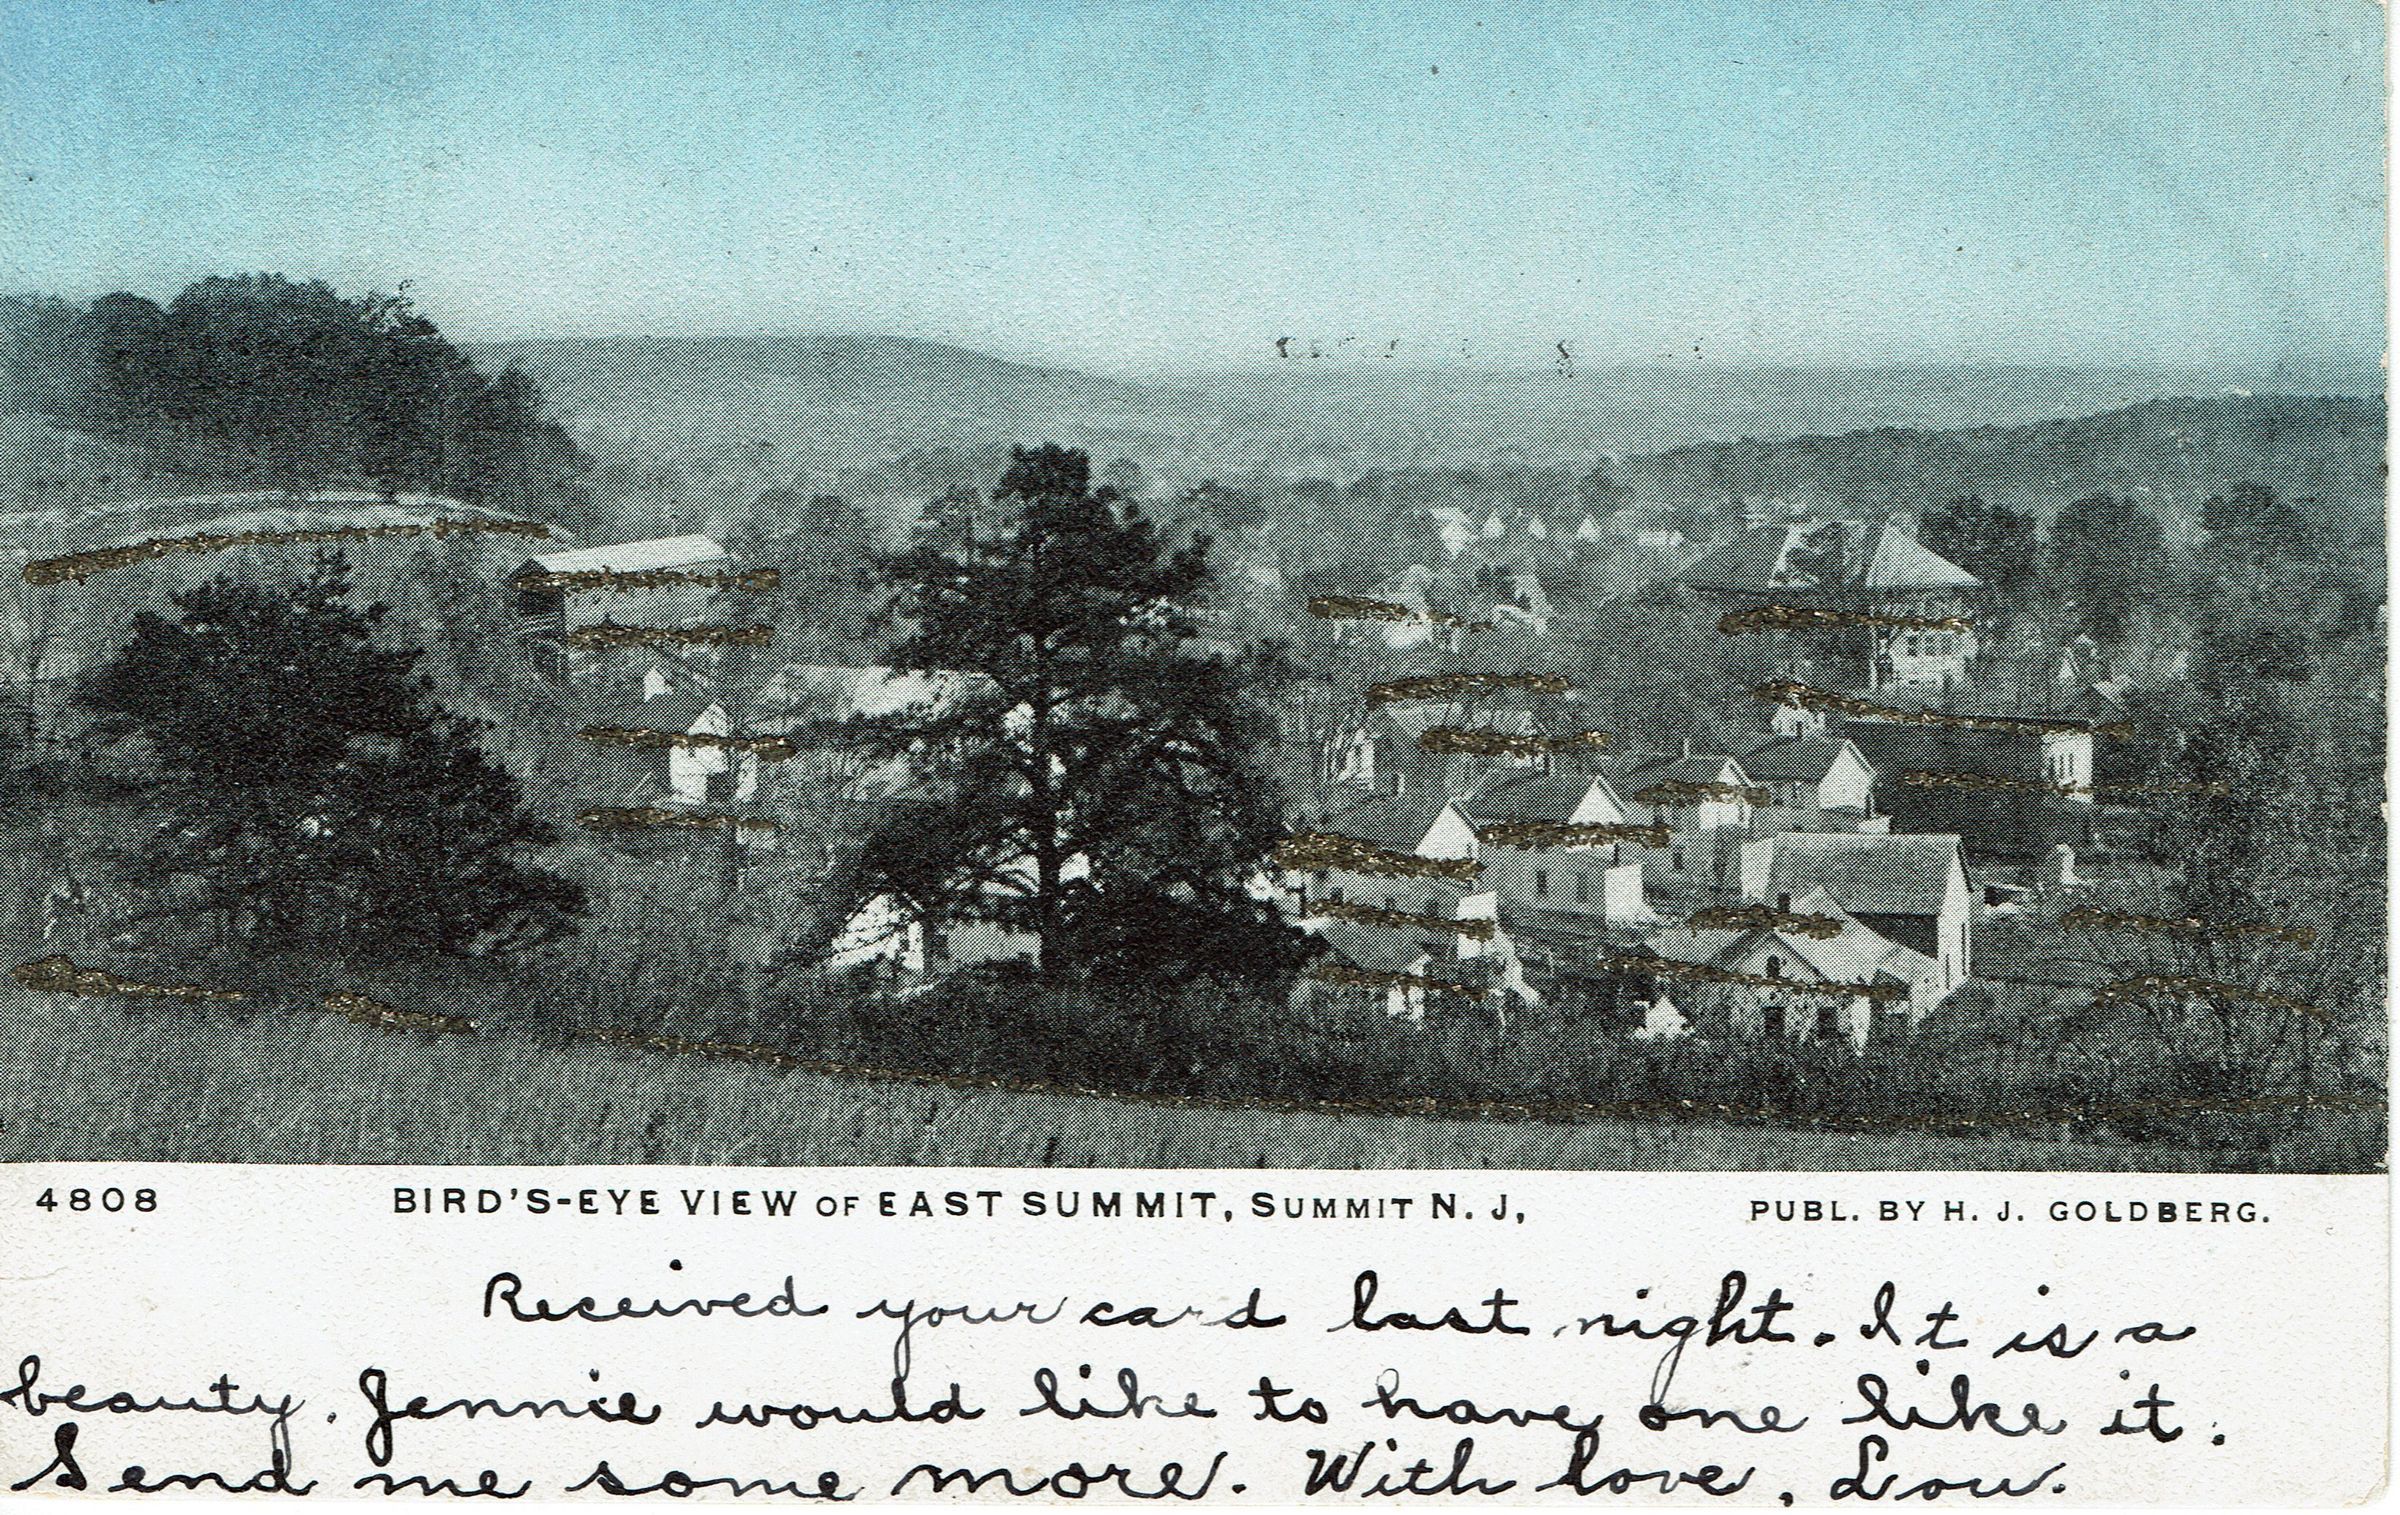 4808 BIRD'S-EYE VIEW OF EAST SUMMIT, SUMMIT N. J, PUBL. BY H. J. GOLDBERG.
Received your card last night. It is a
beauty. Jennie would like to have one like it.
Send me some more. With love, Lou.